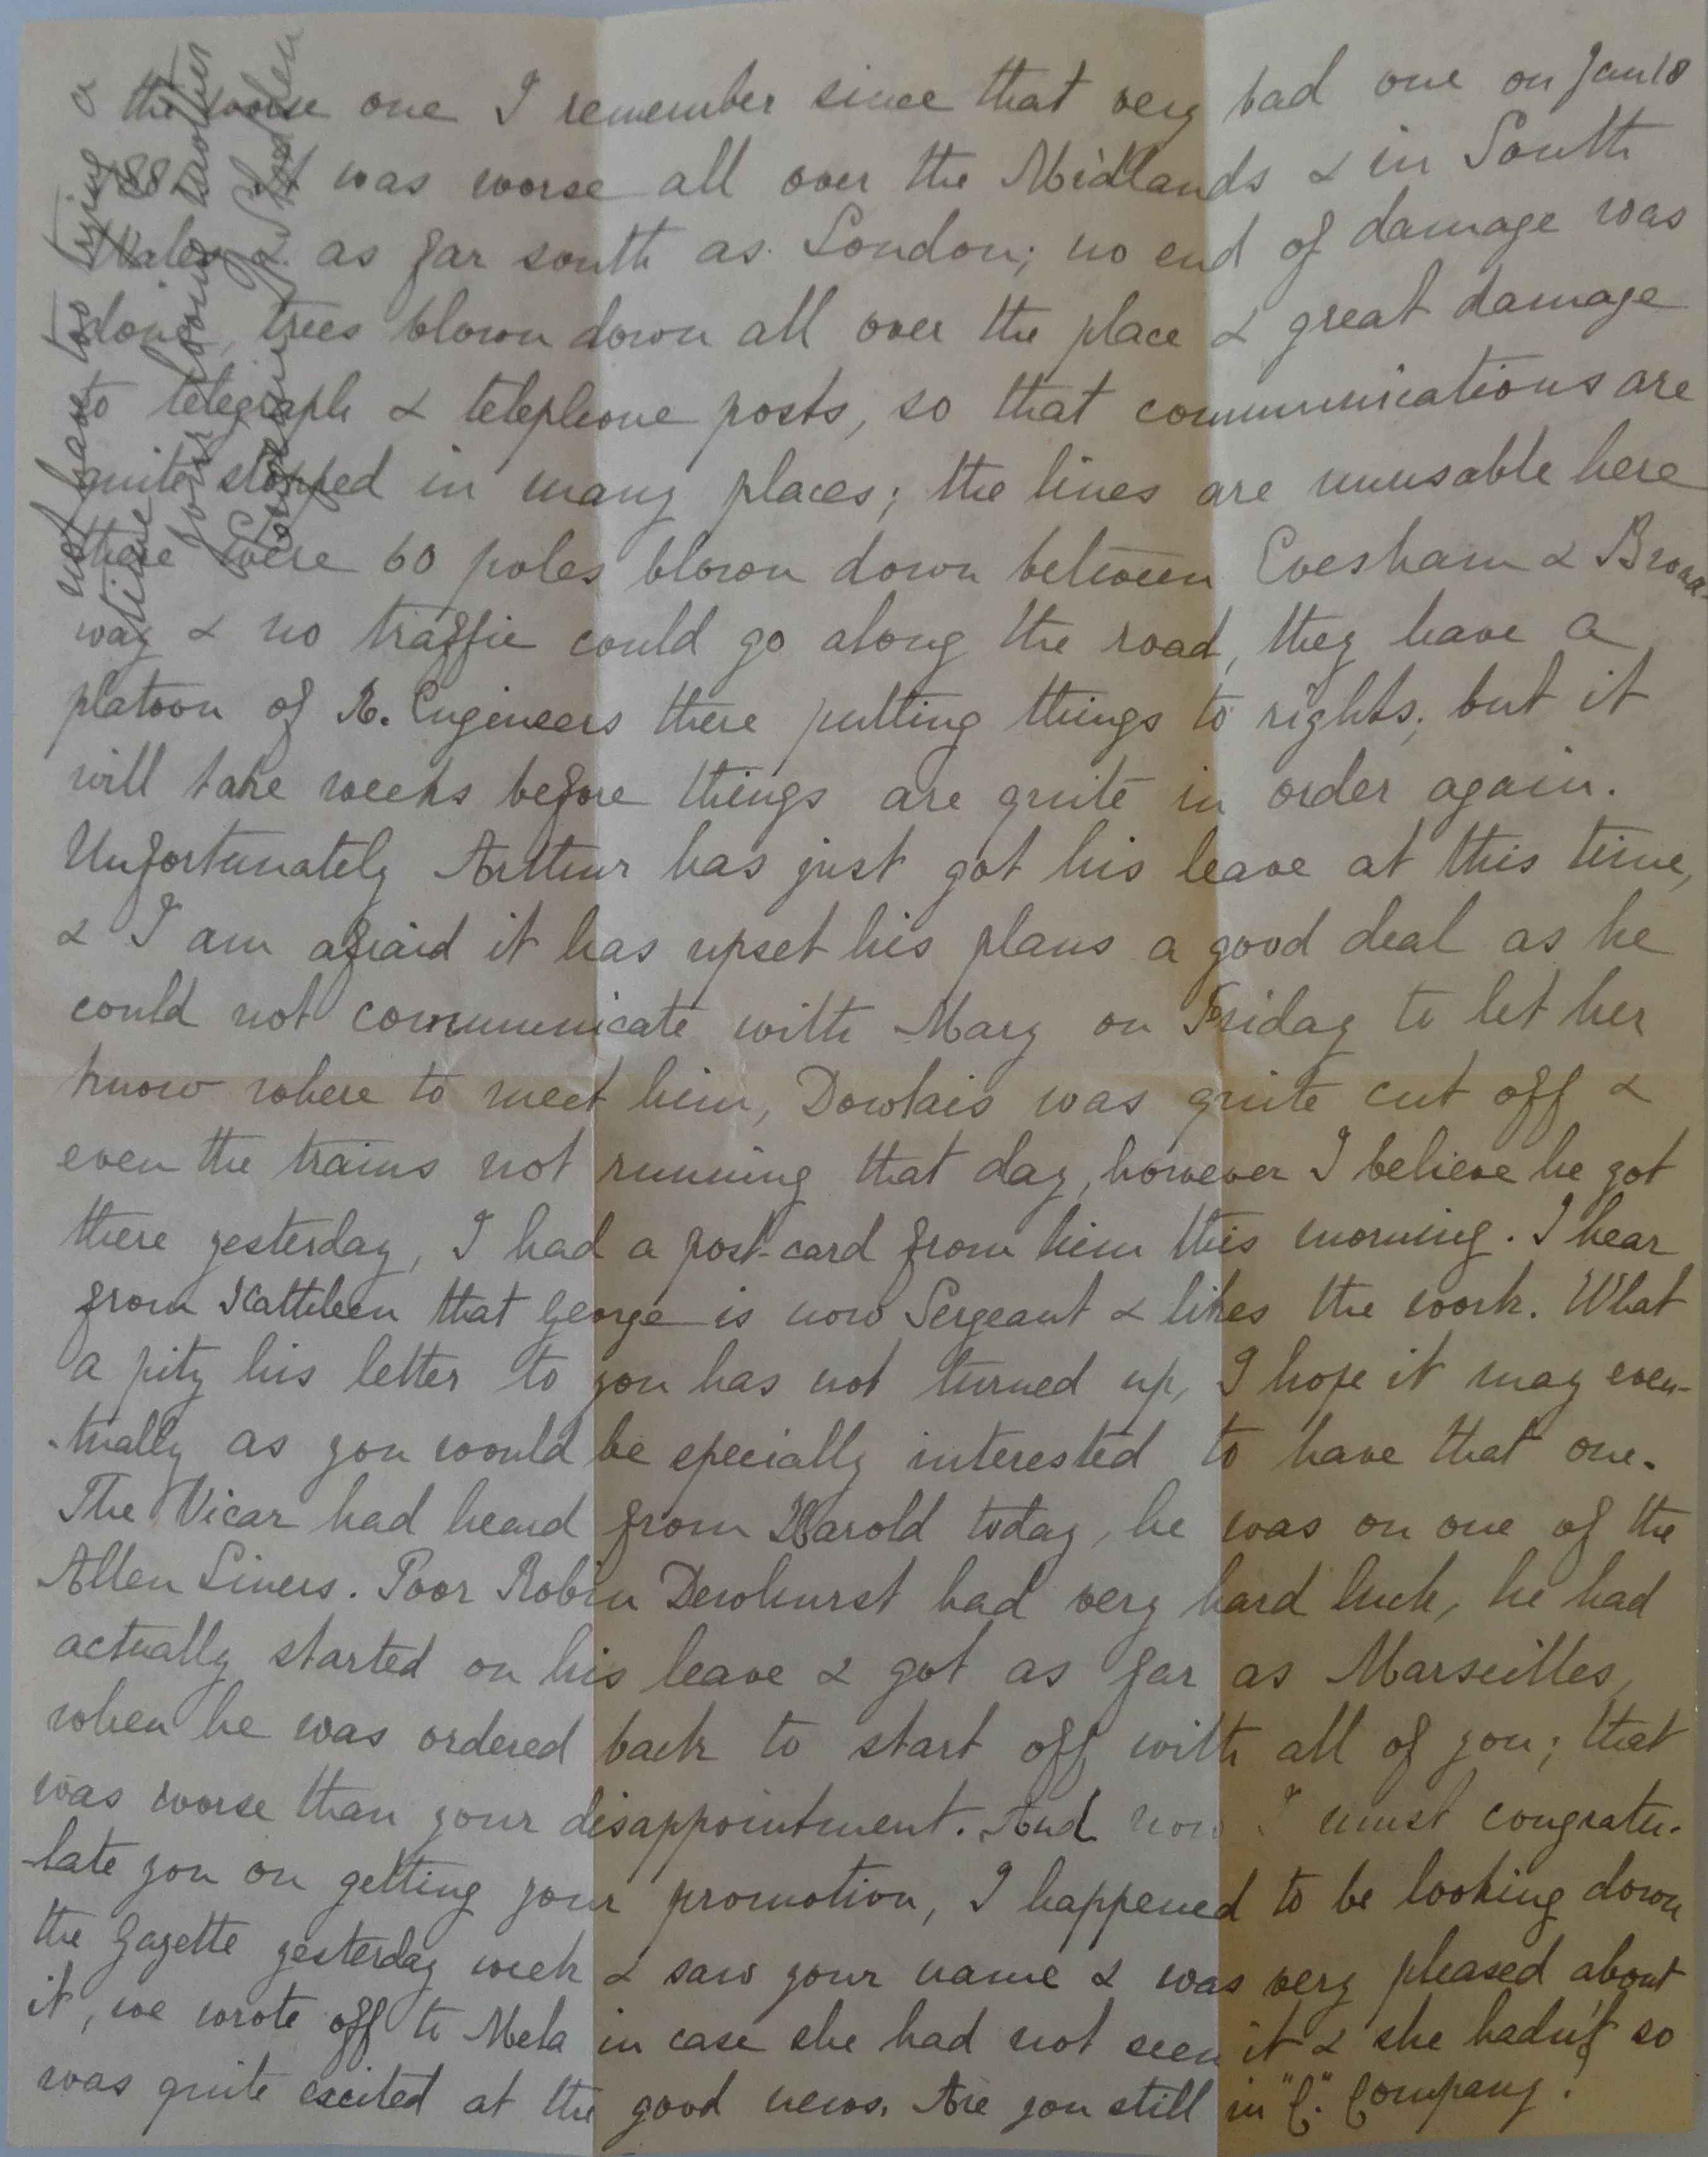 the worse one I remember since that very bad one on Jan 18
'88. It was worse all over the Midlands & in South
Wales & as far south as London; no end of damage was
done, trees blown down all over the place & great damage
to telegraph & telephone posts, so that communications are
quite stopped in many places; the lines are unusable here
there were 60 poles blown down between Evesham & Broad-
way & no traffic could go along the road, they have a
platoon of R. Engineers there putting things to rights, but it
will take weeks before things are quite in order again.
Unfortunately Arthur has just got his leave at this time,
& I am afraid it has upset his plans a good deal as he
could not communicate with Mary on Friday to let her
know where to meet him, Dowlais was quite cut off &
even the trains not running that day, however I believe he got
there yesterday, I had a post-card from him this morning. I hear
from Kathleen that George is now Sergeant & likes the work. What
a pity his letter to you has not turned up, I hope it may even-
-tually as you would be specially interested to have that one.
The Vicar had heard from Harold today, he was on one of the
Allen Liners. Poor Robin Dewhurst had very hard luck, he had
actually started on his leave & got as far as Marseilles,
when he was ordered back to start off with all of you; that
was worse than your disappointment. And now I must congratu-
-late you on getting your promotion, I happened to be looking down
the Gazette yesterday week & saw your name & was very pleased about
it, we wrote off to Mela in case she had not seen it & she hadn't so
was quite excited at the good news. Are you still in "C." Company?
not have too trying a
time
Your loving mother